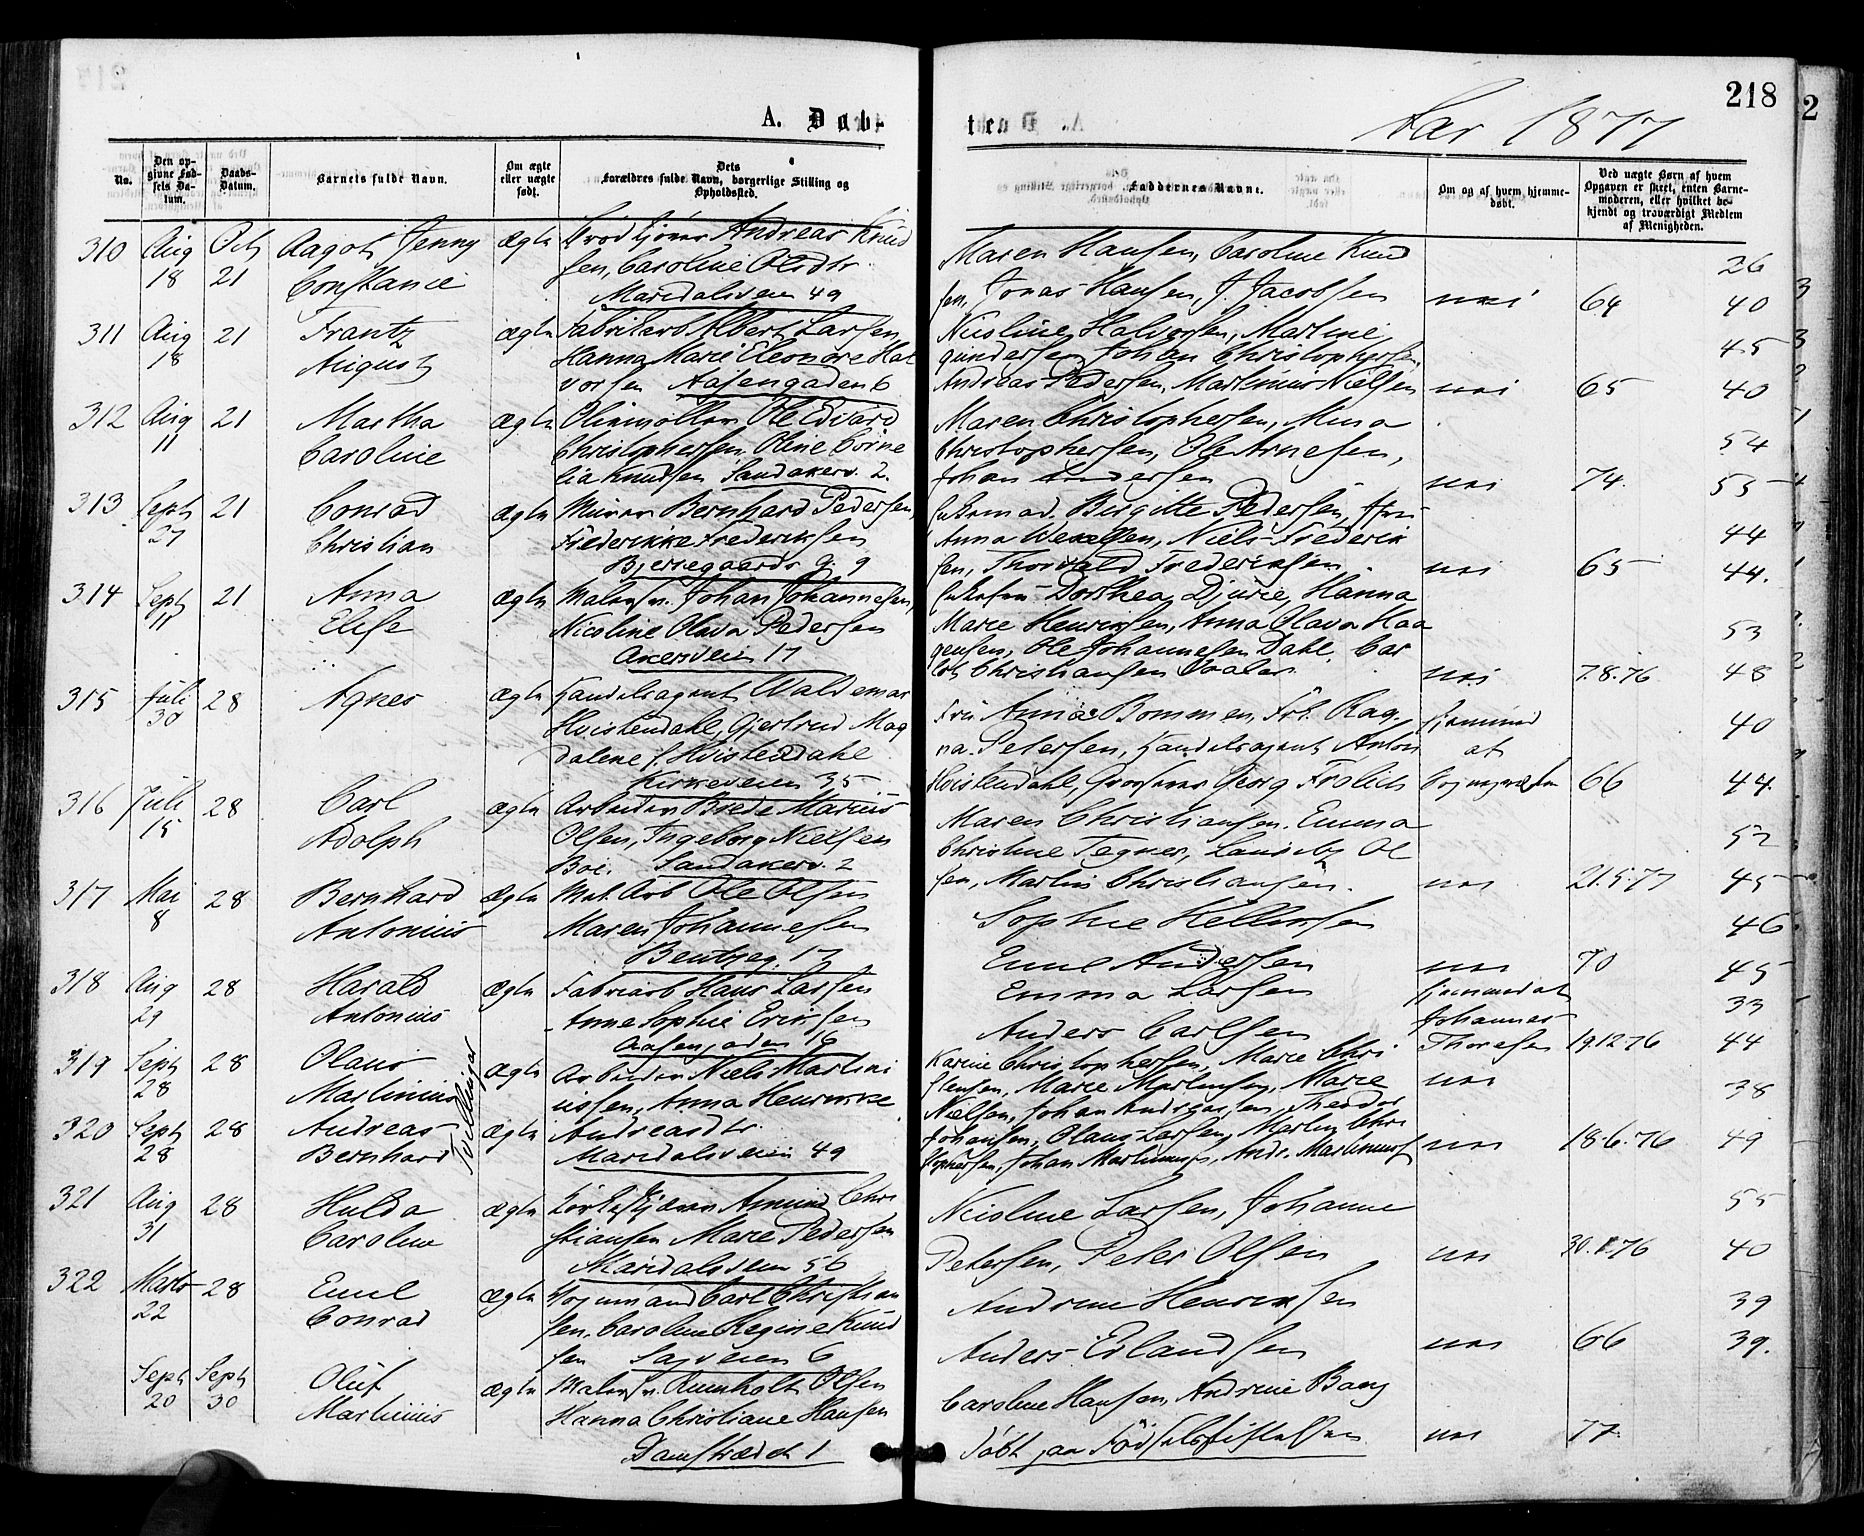 218
A. Døb-
ten
Aar 1877
No.
Den op-
givne Fød-
sels Da-
tum.
Daabs-
Datum.
Barnets fulde Navn.
Om ægte
eller uægte
født.
Dets
Forældres fulde Navn, borgerlige Stilling og
Opholdssted.
Faddernes Navne.
Om og af hvem hjemme-
døbt.
Ved uægte Børn af hvem
Opgaven er skeet, enten Barne-
moderen, eller hvilket be-
kjendt og troværdigt Medlem
af Menigheden.
310 Aug 18 Octb 21 Aagot Jenny
Constance
ægte
Andreas Knud
sen, Caroline Olsdtr.
Maridalsveien 49
Maren Hansen, Caroline Knud
sen, Jonas Hansen, J. Jacobsen nei 64
26
40
311 Aug 18 21 Frantz
August
ægte
Fabrikarb Albert Larsen,
Hanna Marie Eleonore Hal
vorsen Aasengaden 6
Nicoline Halvorsen, Martine
Gundersen, Johan Christophersen,
Andreas Pedersen, Martinus Nielsen nei 65
45
40
312 Aug 11 21 Martha
Caroline
ægte
Ole Edvard
Christophersen, Oline Corne
lia Knudsen Sandakerv. 2.
Maren Christophersen, Mina
Christophersen, Ole Arnesen,
Johan Andersen nei 74.
54
55
313 Septb 27 21 Conrad
Christian
ægte
Murer Bernhard Pedersen,
Frederikke Frederiksen
Bjerregaards g. 9
Birgitte Pedersen,
Anna Wexelsen, Niels Frederik
sen, Thorvald Frederiksen. nei 65
44
44.
314 Septb 11 21 Anna
Elise
ægte
Malersv. Johan Johannesen,
Nicoline Olava Pedersen
Akersveien 17
Dorthea Djurie, Hanna
Marie Henriksen, Anna Olava Haa
gensen, Ole Johannesen Dahl, Car
Christiansen nei 7.8.76
53
48
315 Juli 30 28 Agnes
ægte
Handelsagent Waldemar
Hvistendahl, Gjertrud Mag
dalene f. Hvistendahl
Kirkeveien 35
Fru Anna Bommen, Frk. Rag
na Petersen, Handelsagent Anton
Hvistendahl, Grosserer Georg Frølich
hjemmed
af
Sognepresten 66
40
44.
316 Juli 15 28 Carl
Adolph
ægte
Arbeider Brede Marius
Olsen, Ingeborg Nielsen
Boe. Sandakerv. 2
Maren Christiansen, Emma
Christine Tegner, Ol
sen, Martin Christiansen. nei 21.5.77
52
45
317 Mai 8 28 Bernhard
Antonius
ægte
Mek. Arb Ole Olsen
Maren Johannesen
Bentzeg. 17
Sophie Hellersen
Emil Andersen nei 70
46
45
318 Aug 29 28 Harald
Antonius
ægte
Fabrikarb Hans Larsen
Anne Sophie Eriksen
Aasengaden 19
Emma Larsen
Anders Carlsen
hjemmed af
Johannes
Thoresen 19.12.76
33
44
319 Septb 28 28 Olaus
Martinius
Tvillinger
ægte
Arbeider Niels Martini
ussen, Anna Henrikke
Karine Christophersen, Marie Chri
stensen, Marie Martinsen, Marie
Nielsen, Johan Andreassen, Theodor
nei
38
320 Septb 28 28 Andreas
Bernhard
ægte
Andreasdtr.
Maridalsveien 49
Johansen, Olaus Larsen, Martin Chri
stophersen, Johan Martinius, Andr. Martinius nei 18.6.76
49
321 Aug 31 28 Hulda
Caroline
ægte
Amund Chri
stiansen Marie Pedersen
Maridalsveien 56
Nicoline Larsen, Johanne
Petersen, Peter Olsen nei 30.1.76
55
40
322 Marts 22 28 Emil
Conrad
ægte
Vognmand Carl Christian
sen, Caroline Regine Knud
sen Sagveien 6
Andrine Henriksen
Anders Erlandsen nei 66
39
39.
Septb 20 Septb 30 Oluf
Martinius
ægte
Malersv. Olsen
Hanna Christiane Hansen
Damstrædet 1
Caroline Hansen, Andrine Bang
Døbt paa Fødselsstiftelsen nei 77